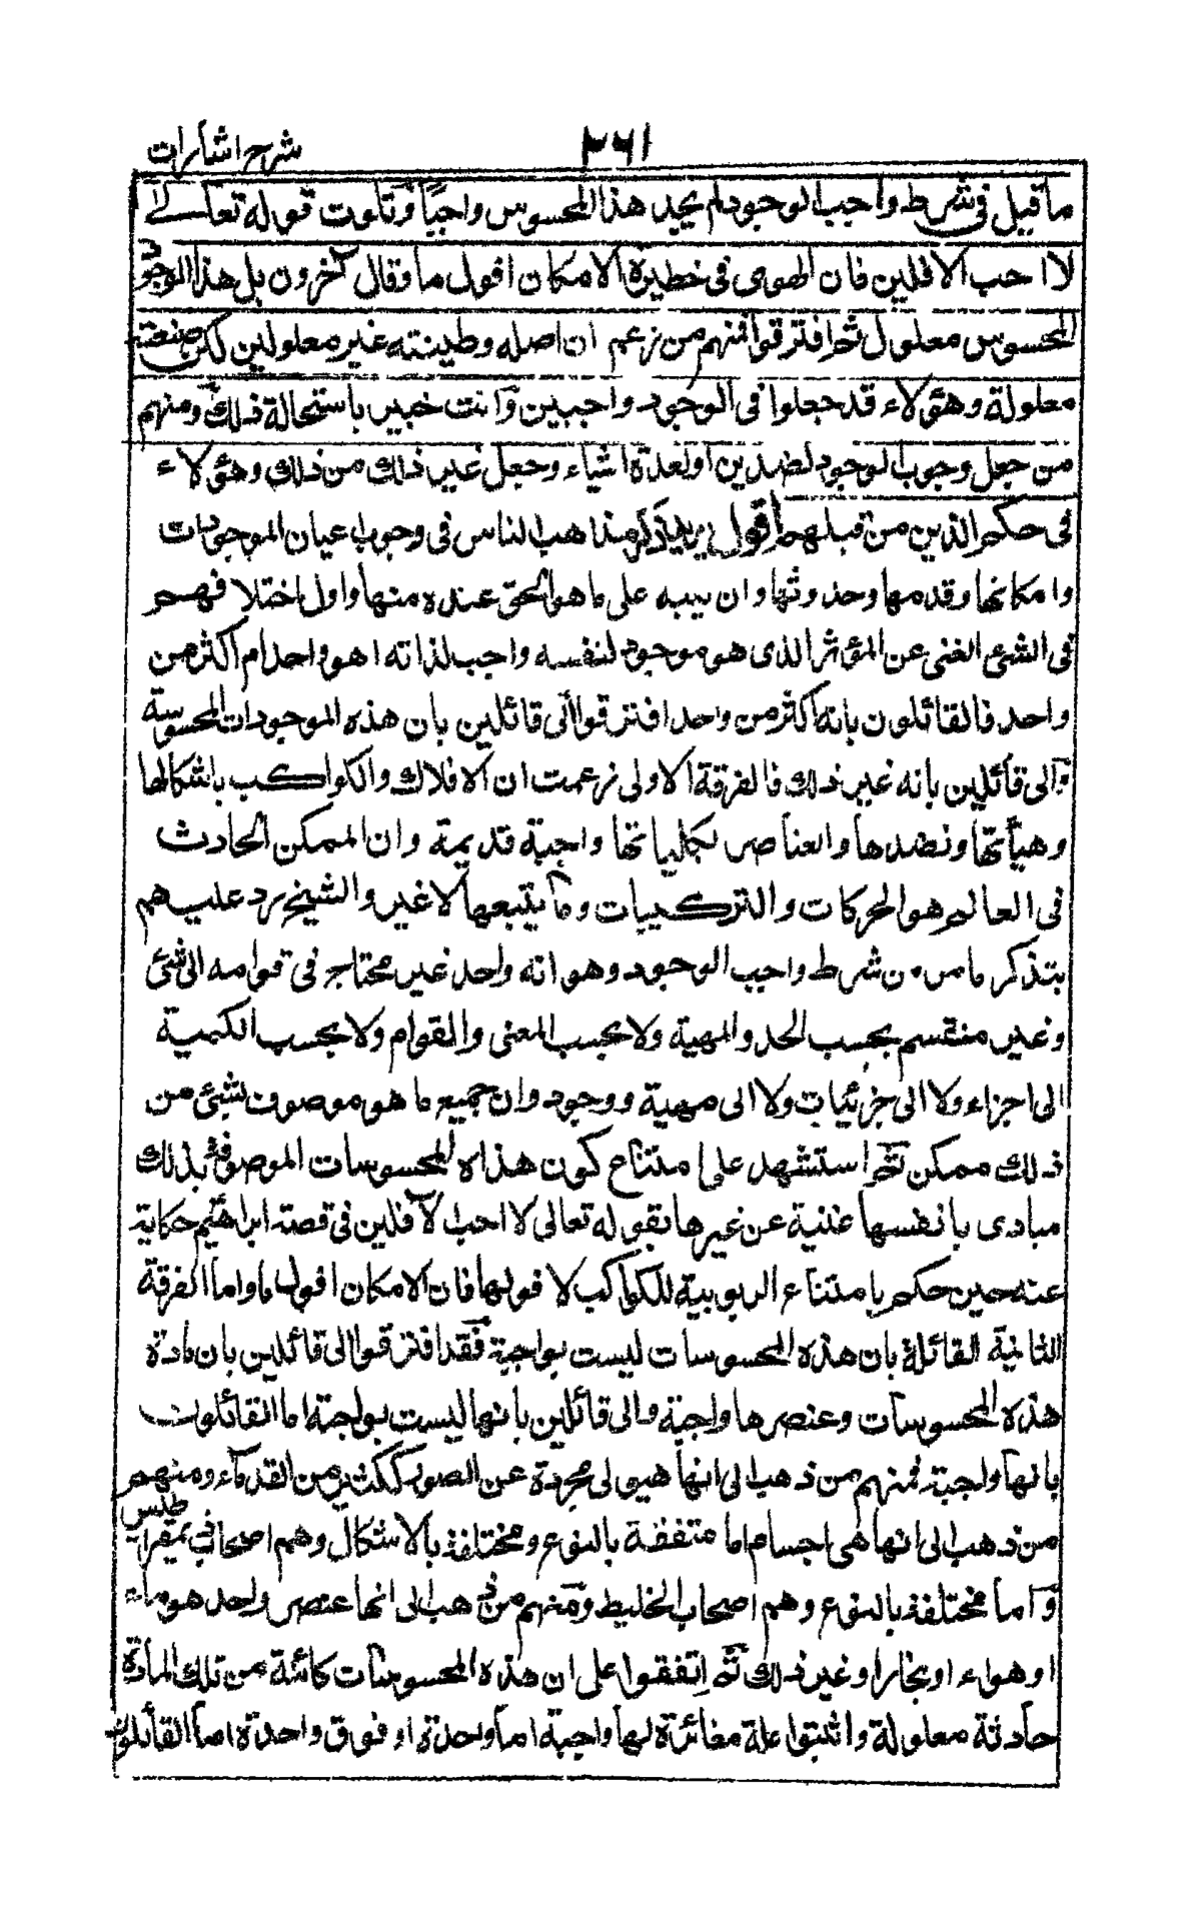 شرح اشارات ٢٦١
ما قيل فى شرط واجب الوجود لم يجد هذا المحسوس واجبًا وتلوت قوله تعالى
لا احب الافلين فان الهوى فى خطيرة الامكان افول ما وقال آخرون بل هذا الوجود
المحسوس معلول ثم افترقوا فمنهم من زعم ان اصله وطينته غير معلولين لكن صنعته
معلولة وهؤلاء قد جعلوا فى الوجود واجبين وانت خبير باستحالة ذلك ومنهم
من جعل وجوب الوجود لضدين او لعدة اشياء وجعل غير ذلك من ذلك وهؤلاء
فى حكم الذين من قبلهم اقول يريد ذكر مذاهب الناس فى وجوب اعيان الموجودات
وامكانها وقدمها وحدوثها وان ينبه على ما هو الحق عنده منها واول اختلافهم
فى الشئ الغنى عن المؤثر الذى هو موجود لنفسه واجب لذاته اهو واحد ام اكثر من
واحد فالقائلون بانه اكثر من واحد افترقوا الى قائلين بان هذه الموجودات المحسوسة
والى قائلين بانه غير ذلك فالفرقة الاولى زعمت ان الافلاك والكواكب باشكالها
وهيأتها ونضدها والعناصر بكلياتها واجبة قديمة وان الممكن الحادث
فى العالم هو الحركات والتركيبات وما يتبعها لا غير والشيخ رد عليهم
بتذكر ما مر من شرط واجب الوجود وهو انه واحد غير محتاج فى قوامه الى شئ
وغير منقسم بحسب الحد والمهية ولا بحسب المعنى والقوام ولا بحسب الكمية
الى اجزاء ولا الى جزئيات ولا الى مهية ووجود وان جميع ما هو موصوف بشئ من
ذلك ممكن ثم استشهد على امتناع كون هذه المحسوسات الموصوفة بذلك
مبادى بانفسها غنية عن غيرها بقوله تعالى لا احب الآفلين فى قصة ابراهيم حكاية
عنه حين حكم بامتناع الربوبية للكواكب لافولها فان الامكان افول ما واما الفرقة
الثانية القائلة بان هذه المحسوسات ليست بواجبة فقد افترقوا الى قائلين بان مادة
هذه المحسوسات وعنصرها واجبة والى قائلين بانها ليست بواجبة اما القائلون
بانها واجبة فمنهم من ذهب الى انها هيولى مجردة عن الصور ككثير من القدماء ومنهم
من ذهب الى انها هى اجسام اما متفقة بالنوع ومختلفة بالاشكال وهم اصحاب ذيمقراطيس
واما مختلفة بالنوع وهم اصحاب الخليط ومنهم من ذهب الى انها عنصر واحد هو ماء
او هواء او بخار او غير ذلك ثم اتفقوا على ان هذه المحسوسات كائنة من تلك المادة
حادثة معلولة واثبتوا علة مغائرة لها واجبة اما واحدة او فوق واحدة اما القائلون